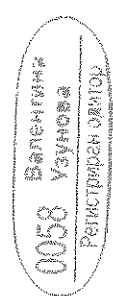 0058 Валентина
Узунова
Регистриран одитор